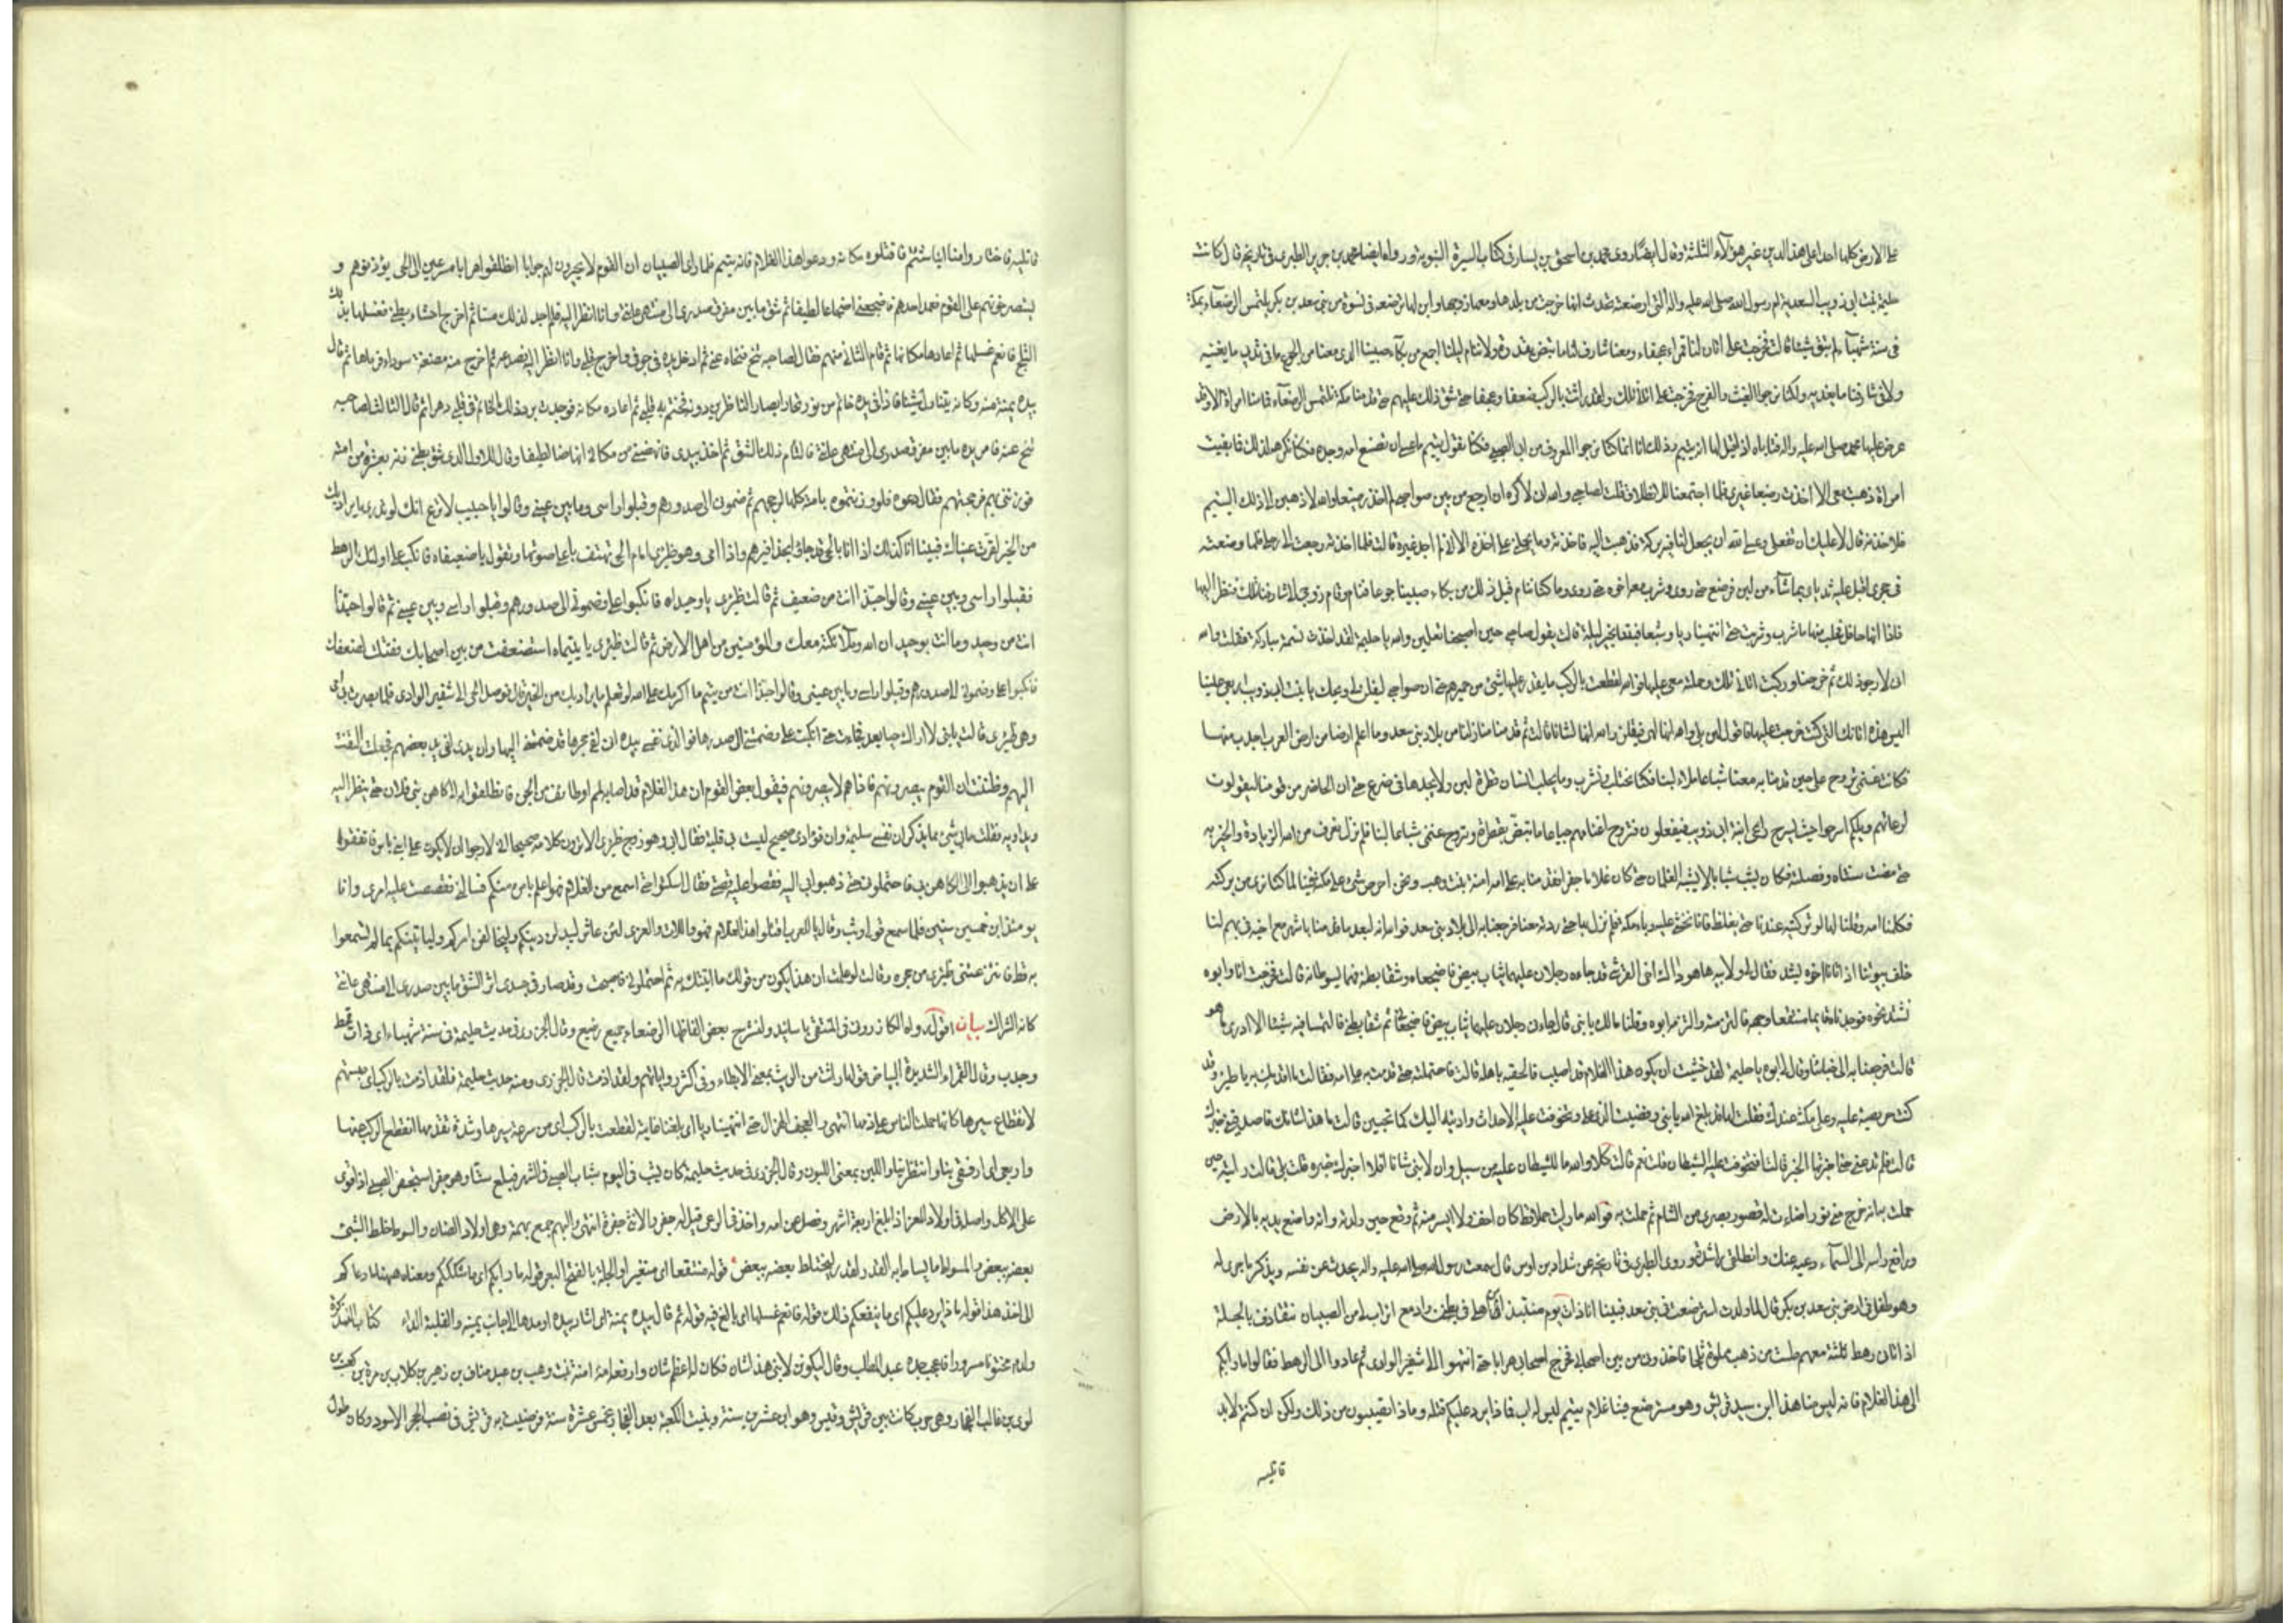 على الارض كلها احد على هذا الدين غير هؤلاء الثلثة وقال ايضا روى محمد بن اسحق بن يسار فى كتاب السيرة النبوية ورواه ايضا محمد بن جرير الطبرى فى تاريخه قال كانت
حليمة بنت ابى ذويب السعدية ام رسول الله صلى الله عليه واله التى ارضعته تحدث انها خرجت من بلدها ومعها زوجها وابن لها ترضعه فى نسوة من بنى سعد بن بكر يلتمس الرضعاء بمكة
فى سنة شهباء لم تبق شيئا قالت فخرجت على اتان لنا قمراء عجفاء ومعنا شارف لنا ما تبض بقطرة ولا ننام ليلنا اجمع من بكاء صبينا الذى معنا من الجوع ما فى ثديى ما يغنيه
ولا فى شارفنا ما يغديه ولكنا نرجوا الغيث والفرج فخرجت على اتانى تلك ولقد اذمت بالركب ضعفا وعجفا حتى شق ذلك عليهم حتى قدمنا مكة نلتمس الرضعاء فما منا امراة الا وقد
عرض عليها محمد صلى الله عليه واله فتاباه اذا قيل لها انه يتيم وذلك انا انما كنا نرجوا المعروف من ابى الصبى فكنا نقول يتيم ما عسى ان تصنع امه وجده فكنا نكرهه لذلك فما بقيت
امراة ذهبت معى الا اخذت رضيعا غيرى فلما اجتمعنا للانطلاق قلت لصاحبى والله انى لاكره ان ارجع من بين صواحبى لم اخذ رضيعا والله لاذهبن الى ذلك اليتيم
فلاخذنه قال لا عليك ان تفعلى وعسى الله ان يجعل لنا فيه بركة فذهبت اليه فاخذته وما يحملنى على اخذه الا انى لم اجد غيره قالت فلما اخذته رجعت الى رحلى فلما وضعته
فى حجرى اقبل عليه ثدياى بما شاء من لبن فرضع حتى روى وشرب معه اخوه حتى روى وما كنا ننام قبل ذلك من بكاء صبينا جوعا فنام وقام زوجى الى شارفنا تلك فنظر اليها
فاذا انها حافل فحلب منها ما شرب وشربت حتى انتهينا ريا وشبعا فبتنا بخير ليلة قالت يقول صاحبى حين اصبحنا تعلمين والله يا حليمة لقد اخذت نسمة مباركة فقلت والله
انى لارجو ذلك ثم خرجنا وركبت اتانى تلك وحملته معى عليها فوالله لقطعت بالركب ما يقدر عليها شئ من حميرهم حتى ان صواحبى ليقلن لى ويحك يا بنت ابى ذويب اربعى علينا
اليس هذه اتانك التى كنت خرجت عليها فاقول لهن بلى والله انها لهى فيقلن والله ان لها لشانا قالت ثم قدمنا منازلنا من بلاد بنى سعد وما اعلم ارضا من ارض العرب اجدب منها
فكانت غنمى تروح على حين قدمنا به معنا شباعا ملاء لبنا فكنا نحتلب ونشرب وما يحلب انسان قطرة لبن ولا يجدها فى ضرع حتى ان الحاضر من قومنا ليقولون
لرعاتهم ويلكم اسرحوا حيث يسرح راعى ابنة ابى ذويب فيفعلون فتروح اغنامهم جياعا ما تبض بقطرة وتروح غنمى شباعا لبنا فلم نزل نعرف من الله الزيادة والخير به
حتى مضت سنتاه وفصلته فكان يشب شبابا لا يشبه الغلمان حتى كان غلاما جفرا فقدمنا به على امه امنة بنت وهب ونحن احرص شئ على مكثه فينا لما كنا نرى من بركته
فكلمنا امه وقلنا لها لو تركتيه عندنا حتى يغلظ فانا نخشى عليه وباء مكة فلم نزل بها حتى ردته معنا فرجعنا به الى بلاد بنى سعد فوالله انه لبعد ما قدمنا باشهر مع اخيه فى بهم لنا
خلف بيوتنا اذ اتانا اخوه يشتد فقال لى ولابيه ها هو ذاك اخى القرشى قد جاءه رجلان عليهما ثياب بيض فاضجعاه وشقا بطنه فهما يسوطانه قالت فخرجت انا وابوه
نشتد نحوه فوجدناه قائما منتقعا وجهه فالتزمته والتزمه ابوه وقلنا مالك يا بنى قال جاءنى رجلان عليهما ثياب بيض فاضجعانى ثم شقا بطنى فالتمسا فيه شيئا لا ادرى ما هو
قالت فرجعنا به الى خبائنا وقال لى ابوه يا حليمة لقد خشيت ان يكون هذا الغلام قد اصيب فالحقيه باهله قالت فاحتملته حتى قدمت به على امه فقالت ما اقدمك به يا ظئر وقد
كنت حريصة عليه وعلى مكثه عندك فقلت لها قد بلغ الله يا بنى وقضيت الذى على وتخوفت عليه الاحداث واديته اليك كما تحبين قالت ما هذا شانك فاصدقينى خبرك
قالت فلم تدعنى حتى اخبرتها الخبر قالت افتخوفت عليه الشيطان قلت نعم قالت كلا والله ما للشيطان عليه من سبيل وان لابنى شانا افلا اخبرك خبره قلت بلى قالت رايت حين
حملت به انه خرج منى نور اضاءت له قصور بصرى من الشام ثم حملت به فوالله ما رايت حملا قط كان اخف ولا ايسر منه ثم وقع حين ولدته وانه واضع يديه بالارض
ورافع راسه الى السماء دعيه عنك وانطلقى راشدة وروى الطبرى فى تاريخه عن شداد بن اوس قال سمعت رسول الله صلى الله عليه واله يحدث عن نفسه ويذكر ما جرى له
وهو طفل فى ارض بنى سعد بن بكر قال لما ولدت استرضعت فى بنى سعد فبينا انا ذات يوم منتبذ من اهلى فى بطن واد مع اتراب لى من الصبيان نتقاذف بالجلة
اذ اتانى رهط ثلثة معهم طست من ذهب مملوة ثلجا فاخذونى من بين اصحابى فخرج اصحابى هرابا حتى انتهوا الى شفير الوادى ثم عادوا الى الرهط فقالوا ما رابكم
الى هذا الغلام فانه ليس منا هذا ابن سيد قريش وهو مسترضع فينا غلام يتيم ليس له اب فماذا يرد عليكم قتله وماذا تصيبون من ذلك ولكن ان كنتم لا بد
قاتليه
قاتليه فاختاروا منا اينا شئتم فاقتلوه مكانه ودعوا هذا الغلام فانه يتيم فلما راى الصبيان ان القوم لا يحيرون لهم جوابا انطلقوا هرابا مسرعين الى الحى يؤذنونهم و
يستصرخونهم على القوم فعمد احدهم فاضجعنى اضجاعا لطيفا ثم شق ما بين مفرق صدرى الى منتهى عانتى وانا انظر اليه فلم اجد لذلك مسا ثم اخرج احشاء بطنى فغسلها بذلك
الثلج فانعم غسلها ثم اعادها مكانها ثم قام الثانى منهم فقال لصاحبه تنح فنحاه عنى ثم ادخل يده فى جوفى واخرج قلبى وانا انظر اليه فصدعه ثم اخرج منه مضغة سوداء فرماها ثم قال
بيده يمنة منه وكانه يتناول شيئا فاذا فى يده خاتم من نور تحار ابصار الناظرين دونه فختم به قلبى ثم اعاده مكانه فوجدت برد ذلك الخاتم فى قلبى دهرا ثم قال الثالث لصاحبه
تنح عنه فامر يده ما بين مفرق صدرى الى منتهى عانتى فالتام ذلك الشق ثم اخذ بيدى فانهضنى من مكانى انهاضا لطيفا وقال للاول الذى شق بطنى زنه بعشرة من امته
فوزننى بهم فرجحتهم فقال دعوه فلو وزنتموه بامته كلها لرجحهم ثم ضمونى الى صدورهم وقبلوا راسى وما بين عينى وقالوا يا حبيب لا ترع انك لو تدرى ما يراد بك
من الخير لقرت عيناك فبينا انا كذلك اذا انا بالحى قد جاؤا بحذافيرهم واذا امى وهى ظئرى امام الحى تهتف باعلى صوتها وتقول يا ضعيفاه فانكب على اولئك الرهط
فقبلوا راسى وبين عينى وقالوا حبذا انت من ضعيف ثم قالت ظئرى يا وحيداه فانكبوا على وضمونى الى صدورهم وقبلوا راسى وبين عينى ثم قالوا حبذا
انت من وحيد وما انت بوحيد ان الله وملائكته معك والمؤمنين من اهل الارض ثم قالت ظئرى يا يتيماه استضعفت من بين اصحابك فقتلت لضعفك
فانكبوا على وضمونى الى صدورهم وقبلوا راسى وما بين عينى وقالوا حبذا انت من يتيم ما اكرمك على الله لو تعلم ما يراد بك من الخير قال فوصل الحى الى شفير الوادى فلما بصرت بى امى
وهى ظئرى قالت يا بنى لا اراك حيا بعد فجاءت حتى انكبت على وضمتنى الى صدرها فوالذى نفسى بيده انى لفى حجرها قد ضمتنى اليها وان يدى لفى يد بعضهم فجعلت التفت
اليهم وظننت ان القوم يبصرونهم فاذا هم لا يبصرونهم فيقول بعض القوم ان هذا الغلام قد اصابه لمم او طائف من الجن فانطلقوا به الى كاهن بنى فلان حتى ينظر اليه
ويداويه فقلت ما بى شئ مما يذكر ان نفسى سليمة وان فؤادى صحيح ليست بى قلبة فقال ابى وهو زوج ظئرى الا ترون كلامه صحيحا انى لارجوا ان لا يكون على ابنى باس فاتفقوا
على ان يذهبوا الى الكاهن بى فاحتملونى حتى ذهبوا بى اليه فقصوا عليه قصتى فقال اسكتوا حتى اسمع من الغلام فهو اعلم بامره منكم فسالنى فقصصت عليه امرى وانا
يومئذ ابن خمس سنين فلما سمع قولى وثب وقال يا للعرب اقتلوا هذا الغلام فهو واللات والعزى لئن عاش ليبدلن دينكم وليخالفن امركم ولياتينكم بما لم تسمعوا
به قط فانتزعتنى ظئرى من حجره وقالت لو علمت ان هذا يكون من قولك ما اتيتك به ثم احتملونى فاصبحت وقد صار فى جسدى اثر الشق ما بين صدرى الى منتهى عانتى
كانه الشراك بيان اقول رواه الكازرونى فى المنتقى باسانيد ولنشرح بعض الفاظها الرضعاء جميع رضيع وقال الجزرى فى حديث حليمة فى سنة شهباء اى ذات قحط
وجدب وقال القمراء الشديدة البياض قولها راثت من الريث بمعنى الابطاء وفى اكثر رواياتهم ولقد اذمت قال الجزرى ومنه حديث حليمة فلقد اذمت بالركب اى حبستهم
لانقطاع سيرها كانها حملت الناس على ذمها انتهى والعجف الهزال حتى انتهينا ريا اى بلغنا غايته لقطعت بالركب اى من سرعة سيرها وشدة تقدمها انقطع الركب عنها
واربعى اى ارفقى بنا وانتظرينا واللبن بمعنى اللبون وقال الجزرى فى حديث حليمة كان يشب فى اليوم شباب الصبى فى الشهر فبلغ ستا وهو جفر استجفر الصبى اذا قوى
على الاكل واصله فى اولاد المعز اذا بلغ اربعة اشهر وفصل عن امه واخذ فى الرعى قيل له جفر والانثى جفرة انتهى والبهم جمع بهمة وهى اولاد الضان والسوط خلط الشئ
بعضه ببعض والمسواط ما يساط به القدر ليختلط بعضه ببعض قوله منتقعا اى متغيرا والجلة بالفتح البعر قوله ما رابكم اى ما شككم ومعناه ههنا ما دعاكم
الى اخذ هذا قوله ماذا يرد عليكم اى ما ينفعكم ذلك قوله فانعم غسلها اى بالغ فيه قوله ثم قال بيده يمنة اى اشار بيده او مدها الى جانب يمينه والقلبة الداء كتاب التذكرة
ولد مختونا مسرورا فاعجب جده عبد المطلب وقال ليكونن لابنى هذا شان فكان له اعظم شان وارفعه امه امنة بنت وهب بن عبد مناف بن زهير بن كلاب بن مرة بن كعب بن
لوى بن غالب الفجار وهى حرب كانت بين قريش وقيس وهو ابن عشرين سنة وبنيت الكعبة بعد الفجار بخمس عشرة سنة فرضيت به قريش فى نصب الحجر الاسود وكان طول